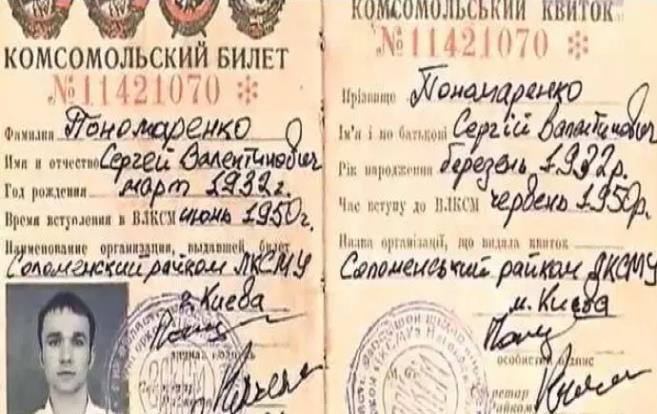 КОМСОМОЛЬСКИЙ БИЛЕТ
№ 11421070 *
Фамилия Пономаренко
Имя и отчество Сергей Валентинович
Год рождения март 1932 г.
Время вступления в ВЛКСМ июнь 1950 г.
Наименование организации, выдавшей билет
Соломенский райком ЛКСМУ
г. Киева
КОМСОМОЛЬСЬКИЙ КВИТОК
№ 11421070 *
Прізвище Пономаренко
Ім'я і по батькові Сергій Валентинович
Рік народження березень 1932 р.
Час вступу до ВЛКСМ червень 1950 р.
Назва організації, що видала квиток
Соломенський райком ЛКСМУ
м. Києва
особистий підпис